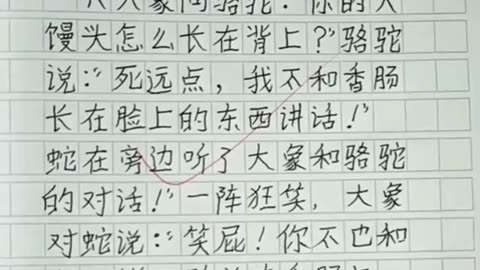 大象问骆驼:你的大
馒头怎么长在背上?骆驼
说:“死远点,我不和香肠
长在脸上的东西讲话!”
蛇在旁边听了大象和骆驼
的对话!”一阵狂笑,大象
对蛇说:“笑屁!你不也和